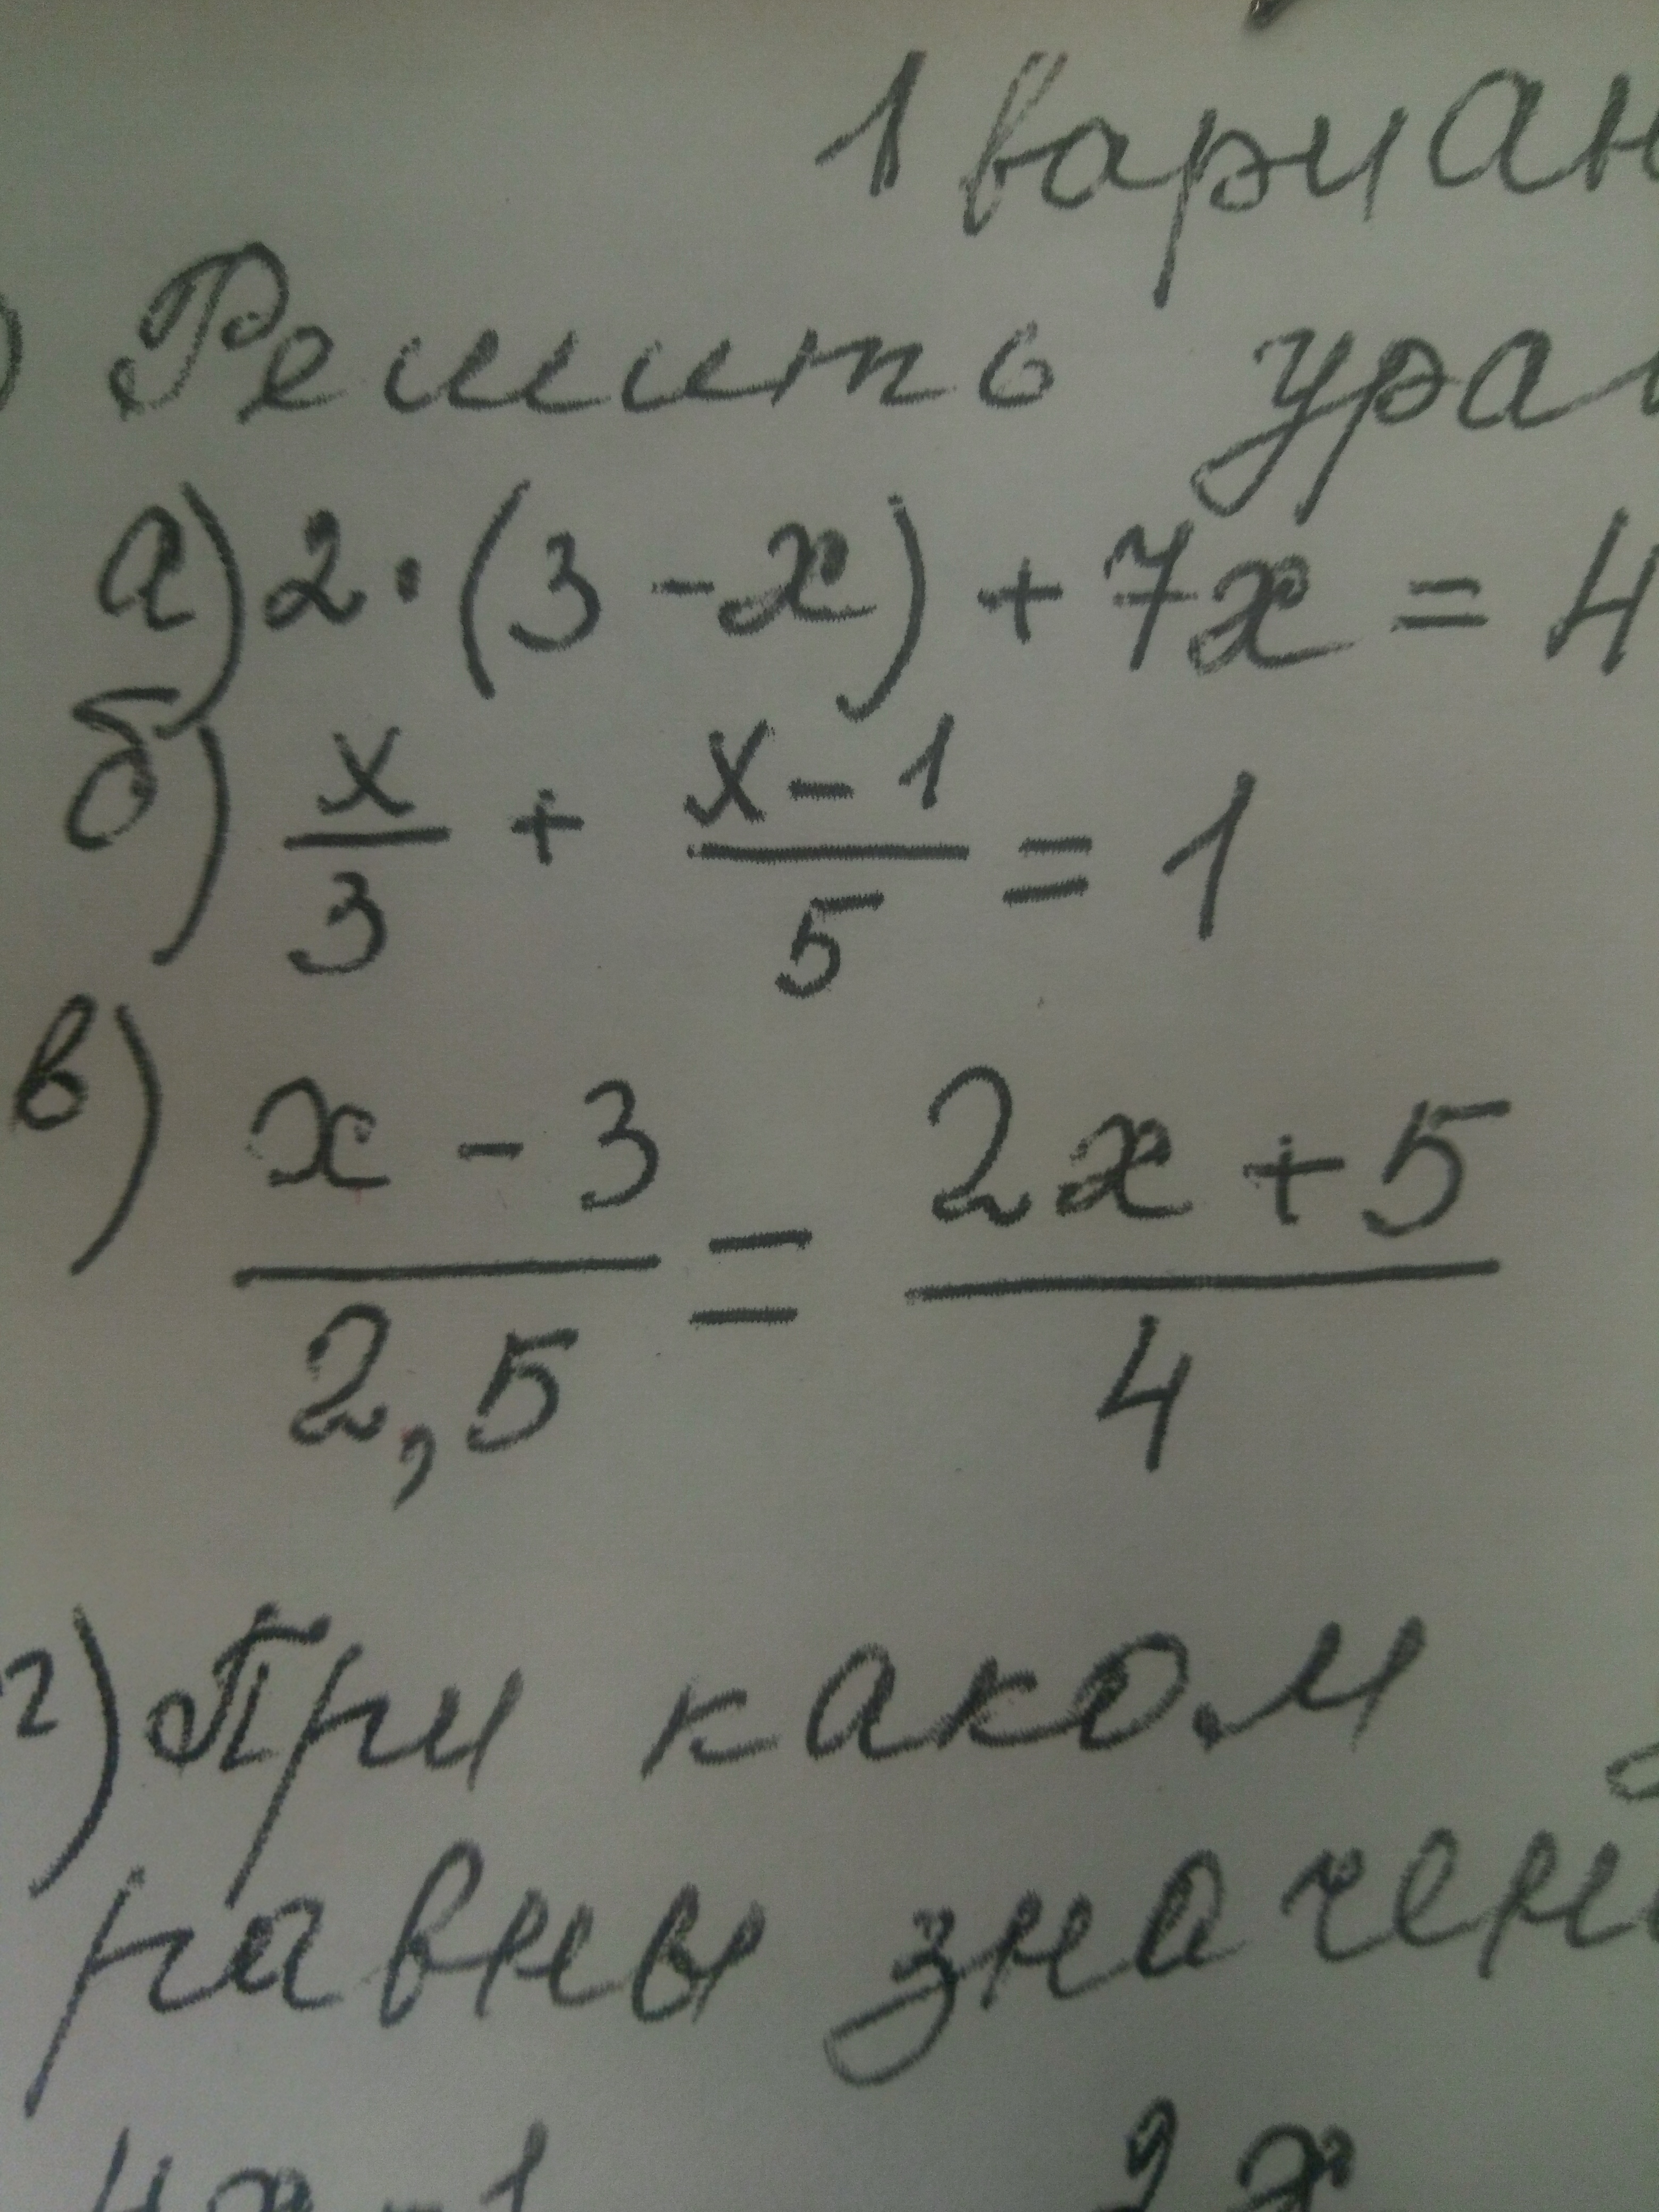 1 вариан
) Решить урав
а) 2 · (3 - x) + 7x = 4
б) x/3 + (x - 1)/5 = 1
в) (x - 3)/2,5 = (2x + 5)/4
г) При каком
равны значен
4x - 1 2x